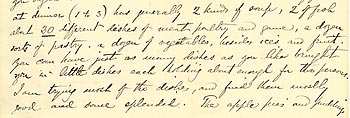 at dinner (1 to 3) has generally 2 kinds of soup, 2 of fish
abt 30 different dishes of meat poultry and game, a dozen
sorts of pastry. a dozen of vegetables, besides ices and fruit
You can have just as many dishes as you like brought
you in little dishes each holding about enough for two persons.
I am trying most of the dishes, and find them mostly
good and some splendid. The apple pies and pudding